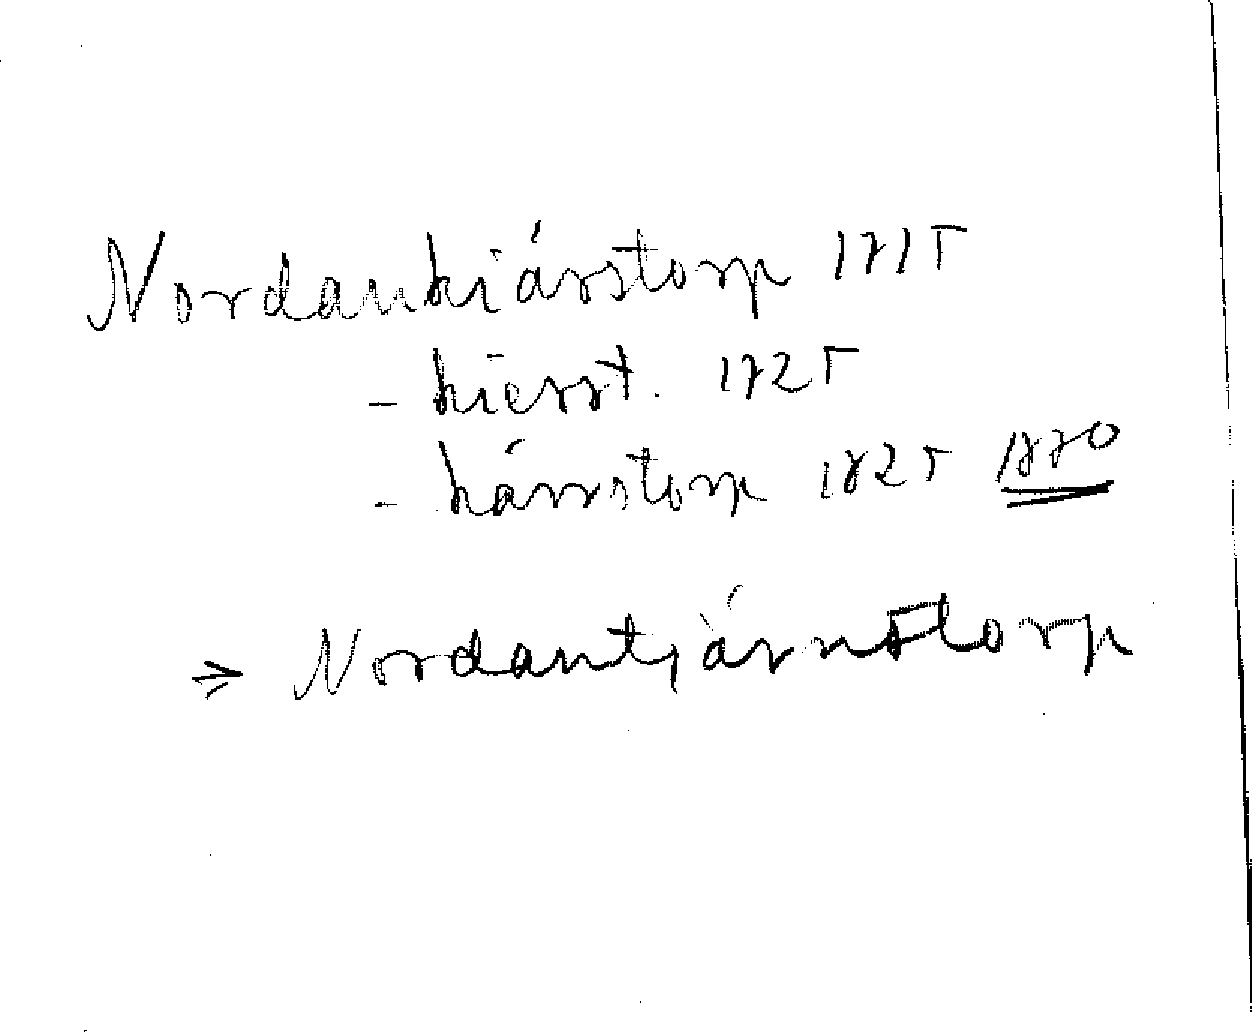 Nordankiärstorp 1715
- kierst. 1725
- kärrstorp 1825 1870
⇒ Nordantjärnstorp